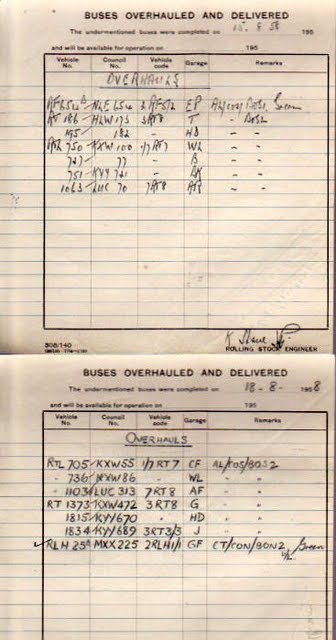 BUSES OVERHAULED AND DELIVERED
The undermentioned buses were completed on 15. 8 58 195
and will be available for operation on 195
Vehicle No. Council No. Vehicle code Garage Remarks
OVERHAULS
NLE 654 EP Green
RT 186 HLW 173 3RT8 T "
195 182 HD " "
RTL 750 KXW 100 1/7 RT7 WL " "
727 77 B " "
751 KYY 721 " "
1063 LUC 70 7RT8 " "
308/140
ROLLING STOCK ENGINEER
BUSES OVERHAULED AND DELIVERED
The undermentioned buses were completed on 18 - 8 - 1958
and will be available for operation on 195
Vehicle No. Council No. Vehicle code Garage Remarks
OVERHAULS
RTL 705 KXW55 1/7 RT7 CF AL/COS/BOS2
" 736 NXW86 " WL " "
" 1103 LUC 313 7RT8 AF " "
RT 1373 KXW472 3RT8 G " "
1815 KYY670 " HD " "
1834 KYY689 3RT3/3 J " "
RLH 25 MXX225 2RLH1/1 GF CT/CON/BON2 Green